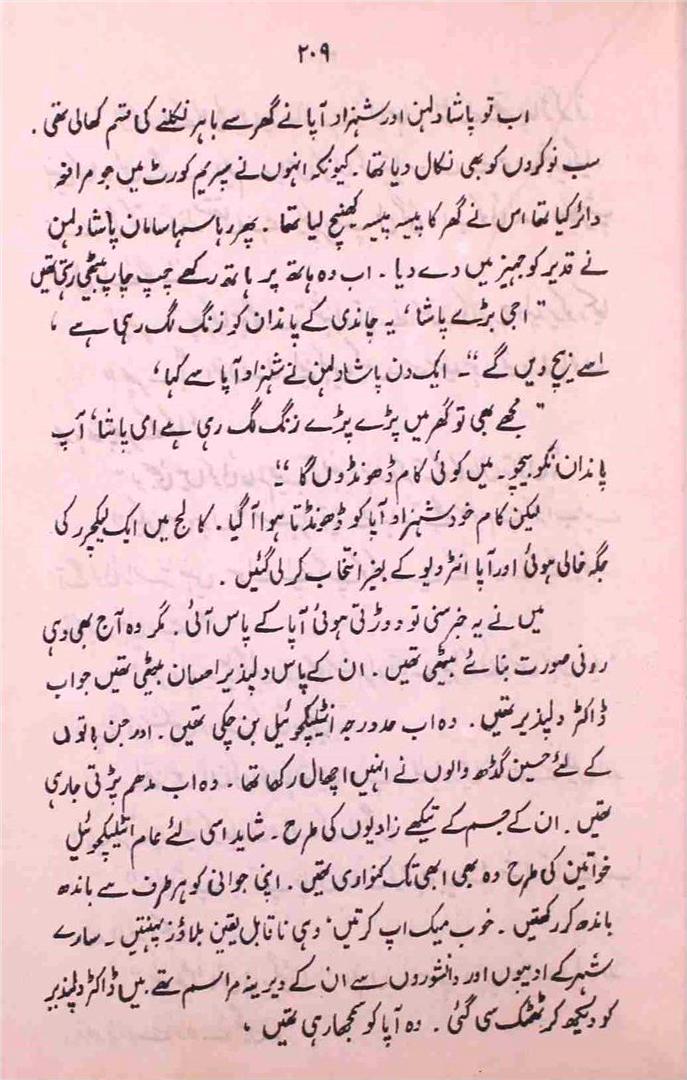 ۲۰۹
اب تو پاشا دلہن اور شہزاد آپا نے گھر سے باہر نکلنے کی قسم کھالی تھی .
سب نوکروں کو بھی نکال دیا تھا . کیونکہ انہوں نے سپریم کورٹ میں جو مرافعہ
دائر کیا تھا اس نے گھر کا پیسہ پیسہ کھینچ لیا تھا . پھر رہا سہا سامان پاشا دلہن
نے قدیر کو جہیز میں دے دیا . اب وہ ہاتھ پر ہاتھ رکھے چپ چاپ بیٹھی رہتی تھیں
" اجی بڑے پاشا ' یہ چاندی کے پاندان کو زنگ لگ رہی ہے ،
اسے بیچ دیں گے "۔ ایک دن پاشا دلہن نے شہزاد آپا سے کہا '
" مجھے بھی تو گھر میں پڑے پڑے زنگ لگ رہی ہے امی پاشا ' آپ
پاندان نکو بیچو۔ میں کوئی کام ڈھونڈوں گا "۔
لیکن کام خود شہزاد آپا کو ڈھونڈتا ہوا آگیا . کالج میں ایک لیکچرر کی
جگہ خالی ہوئی اور آپا انٹرویو کے بغیر انتخاب کرلی گئیں .
میں نے یہ خبر سنی تو دوڑتی ہوئی آپا کے پاس آئی . مگر وہ آج بھی وہی
رونی صورت بنائے بیٹھی تھیں . ان کے پاس دلپذیر احسان بیٹھی تھیں جو اب
ڈاکٹر دلپذیر تھیں . وہ اب حد درجہ انٹلیکچوئیل بن چکی تھیں . اور جن باتوں
کے لئے حسین گڈھ والوں نے انہیں اچھال رکھا تھا . وہ اب مدھم پڑتی جا رہی
تھیں . ان کے جسم کے تیکھے زاویوں کی طرح . شاید اسی لئے عام انٹلیکچوئیل
خواتین کی طرح وہ بھی ابھی تک کنواری تھیں . اپنی جوانی کو ہر طرف سے باندھ
باندھ کر رکھتیں . خوب میک اپ کرتیں ' وہی ناقابل یقین بلاؤز پہنتیں . سارے
شہر کے ادیبوں اور دانشوروں سے ان کے دیرینہ مراسم تھے میں ڈاکٹر دلپذیر
کو دیکھ کر ٹھٹک سی گئی . وہ آپا کو سمجھا رہی تھیں ،